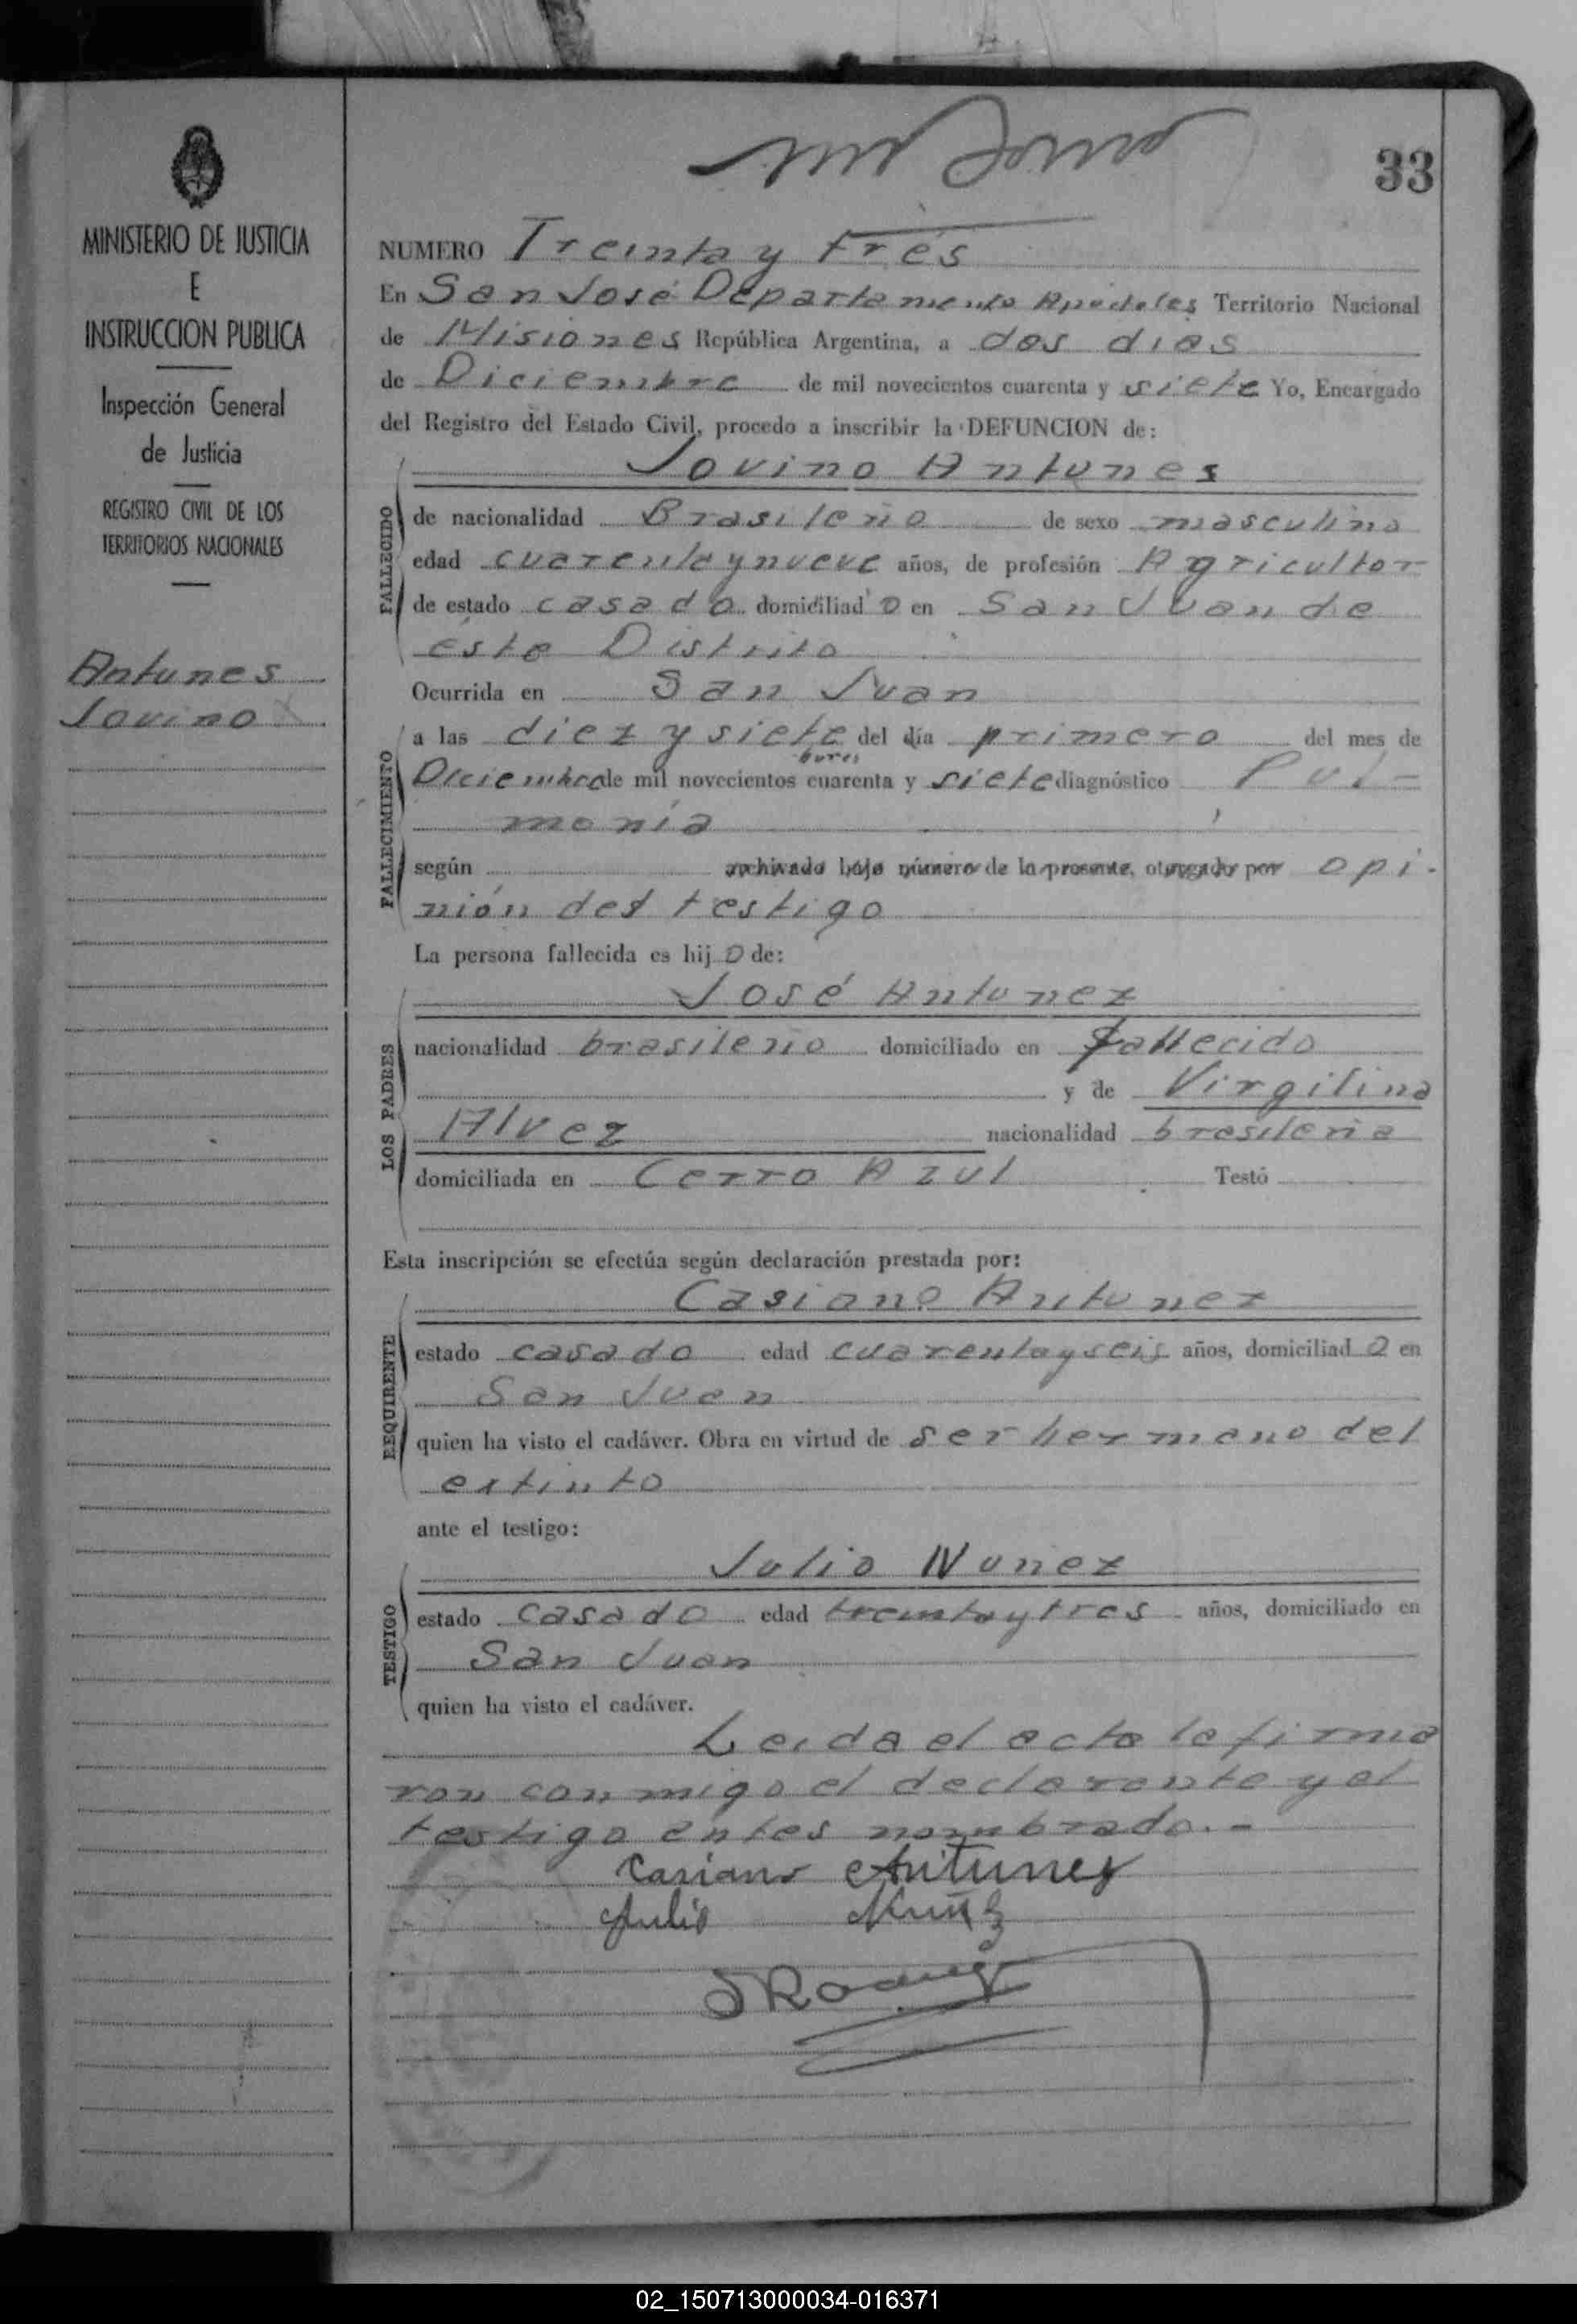 33
MINISTERIO DE JUSTICIA
E
INSTRUCCION PUBLICA
Inspección General
de Justicia
REGISTRO CIVIL DE LOS
TERRITORIOS NACIONALES
Antunes
Jovino
NUMERO Treinta y tres
En San José Departamento Apóstoles Territorio Nacional
de Misiones República Argentina, a dos dias
de Diciembre de mil novecientos cuarenta y siete Yo, Encargado
del Registro del Estado Civil, procedo a inscribir la DEFUNCION de:
Jovino Antunes
FALLECIDO
de nacionalidad Brasileño de sexo masculino
edad cuarenta y nueve años, de profesión Agricultor
de estado casado domiciliad o en San Juan de
este Distrito
Ocurrida en San Juan
FALLECIMIENTO
a las diez y siete horas del día primero del mes de
Diciembre de mil novecientos cuarenta y siete diagnóstico Pul-
monía
según archivado bajo número de la presente, otorgado por opi-
nión del testigo
La persona fallecida es hij o de:
LOS PADRES
José Antunez
nacionalidad brasileño domiciliado en fallecido
y de Virgilina
Alvez nacionalidad brasileña
domiciliada en Cerro Azul Testó
Esta inscripción se efectúa según declaración prestada por:
REQUIRENTE
Casiano Antunez
estado casado edad cuarenta y seis años, domiciliad o en
San Juan
quien ha visto el cadáver. Obra en virtud de ser hermano del
extinto
ante el testigo:
TESTIGO
Julio Nuñez
estado casado edad treinta y tres años, domiciliado en
San Juan
quien ha visto el cadáver.
Leida el acta la firma
ron conmigo el declarante y el
testigo antes nombrado.-
Casiano Antunes
Julio
02_150713000034-016371